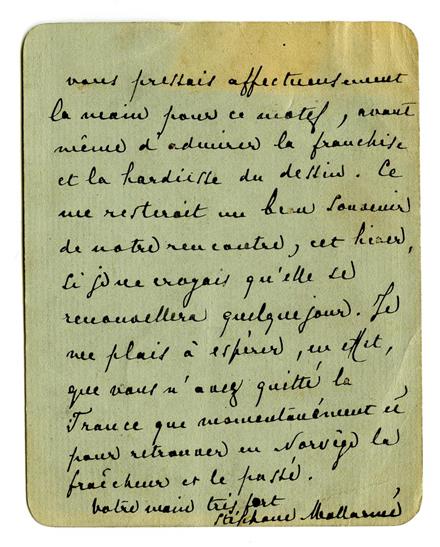 vous pressais affectueusement
la main pour ce motif, avant
même d'admirer la franchise
et la hardiesse du dessin. Ce
me resterait un beau souvenir
de notre rencontre, cet hiver,
si je ne croyais qu'elle se
renouvellera quelque jour. Je
me plais à espérer, en effet,
que vous n'avez quitté la
France que momentanément et
pour retrouver en Norvège la
fraîcheur et le passé.
Votre main très fort
Stéphane Mallarmé